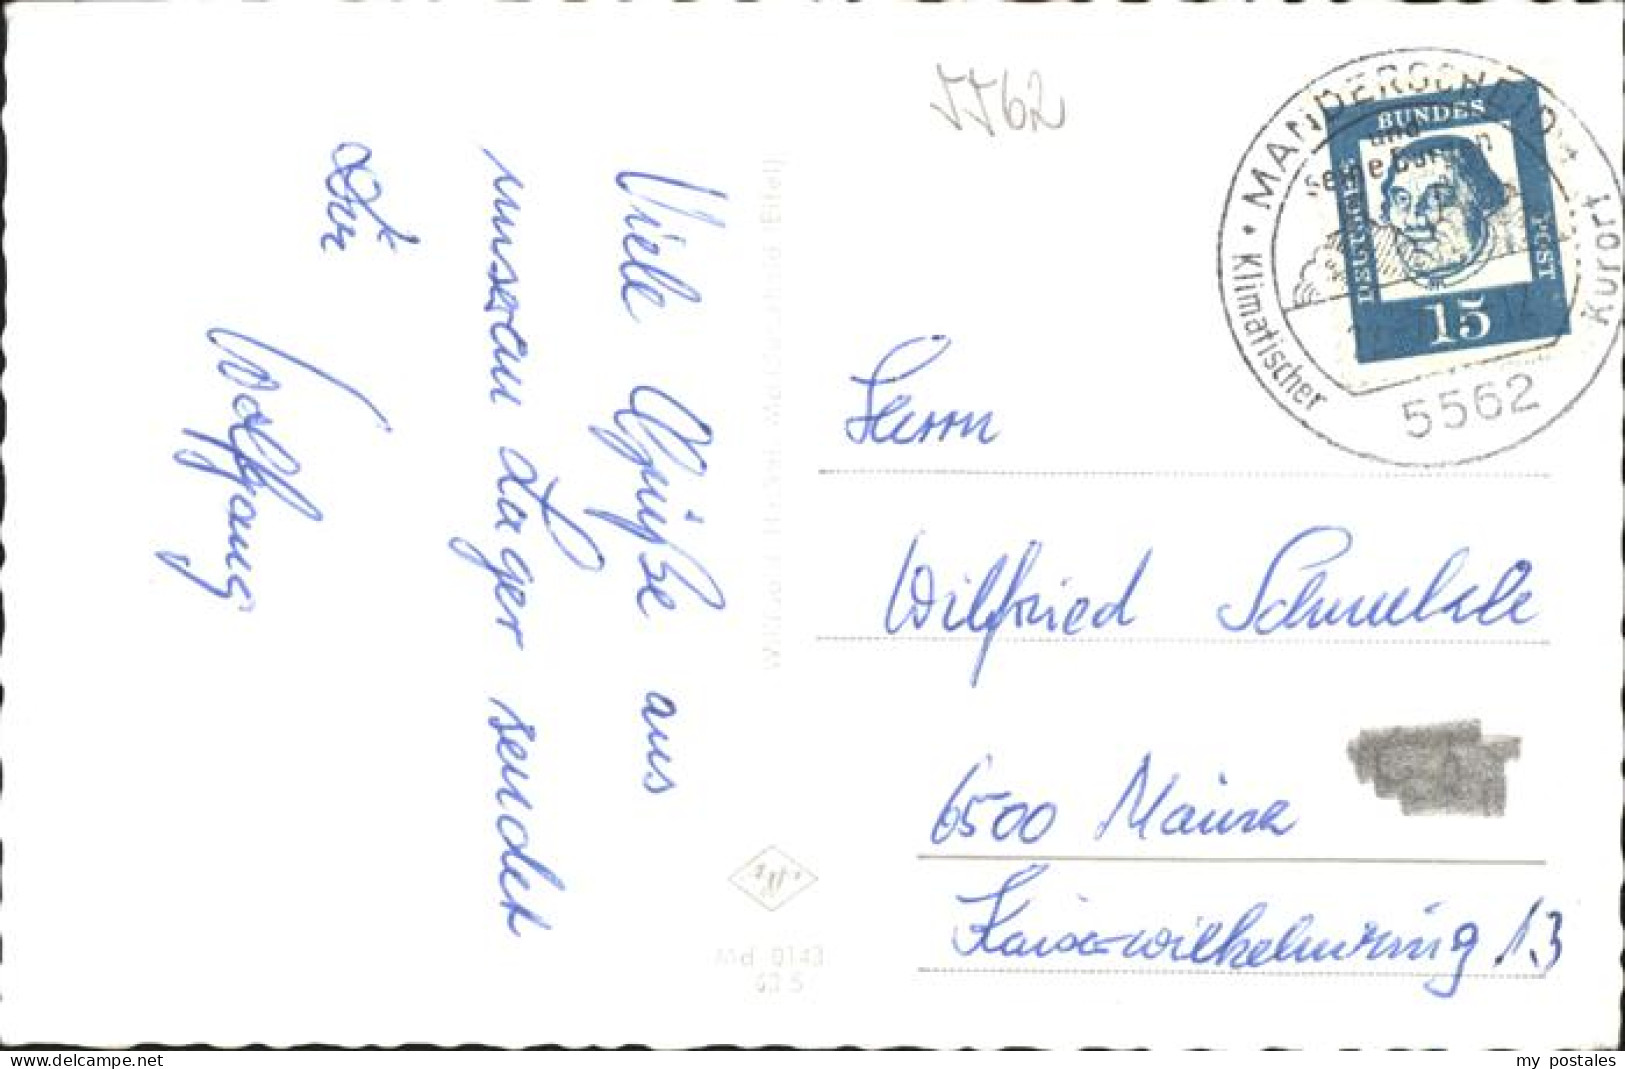 5562
MANDERSCHEID
und
seine Burgen
Klimatischer
Kurort
5562
DEUTSCHE
BUNDES
POST
15
Viele Grüße aus
unserem Lager sendet
Dir
Wolfgang
Herrn
Wilfried
6500 Mainz
Kaiser-wilhelmring 13
Md 0143
www.delcampe.net
my postales